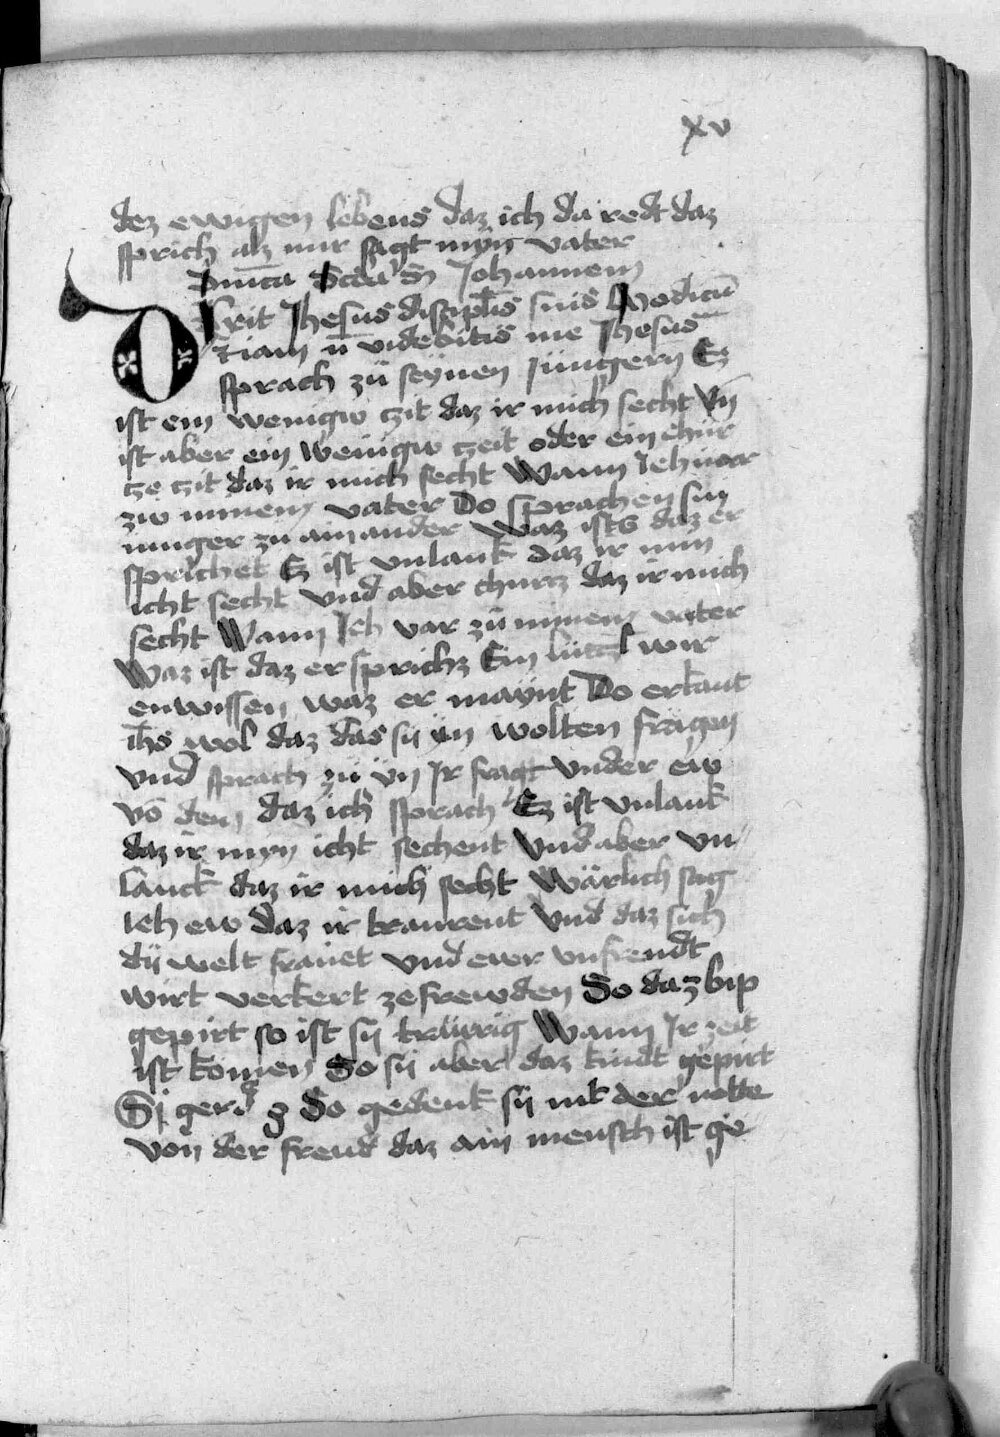 xv
dez ewigen lebens daz ich da redt daz
sprich alz mir sagt myn vater
Dmīca Scda s̄ Johannem
Dixit Jhesus discipl̄is suis Modicū
Et iam n̄ videbitis me Jhesus
sprach zū seynen Jungern Ez
ist ein wenigw czit daz ir mich secht Vn̄
ist aber ein wenigw czeit oder ein chür
cze czit daz ir mich secht Wann Ich var
zw minem vater Do sprachen sin
iunger zu ainander Waz ists daz er
sprichet Ez ist vnlank daz ir min
icht secht vnd aber churcz daz ir mich
secht Wann Ich var zū minem vater
Waz ist daz er sprichz Ein lüttzl wir
enwissen waz er maynt Do erkant
ih̄s wol daz das sü yn wolten fragen
vnd sprach zü yn Jr fragt vnder ew
vō dem daz ich sprach Ez ist vnlank
daz ir myn icht sechent Vnd aber vn
lanck daz ir mich secht Wärlich sag
Ich ew daz ir traurent Vnd daz sich
dÿ welt frauet vnd ewr vnfreudt
wirt verkert zefrewden So daz bip
gepirt so ist sÿ träwrig Wann Jr zeit
ist komen So sü aber daz kindt gepirt
So gedenk sÿ nit der notte
von der freud daz ain mensch ist ge